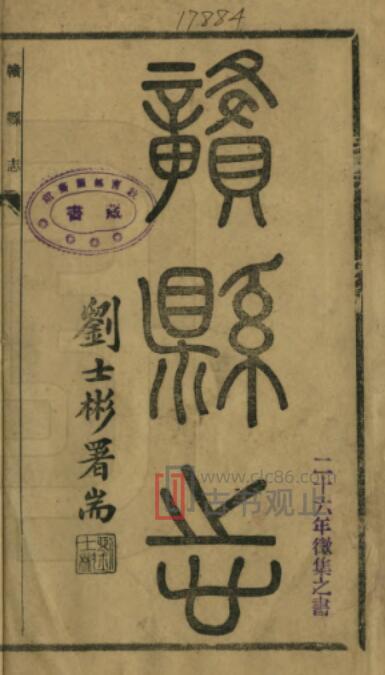 17884
贛縣志
藏書
贛縣志
劉士彬署耑
二十六年徵集之書
www.clc86.com
古书观止